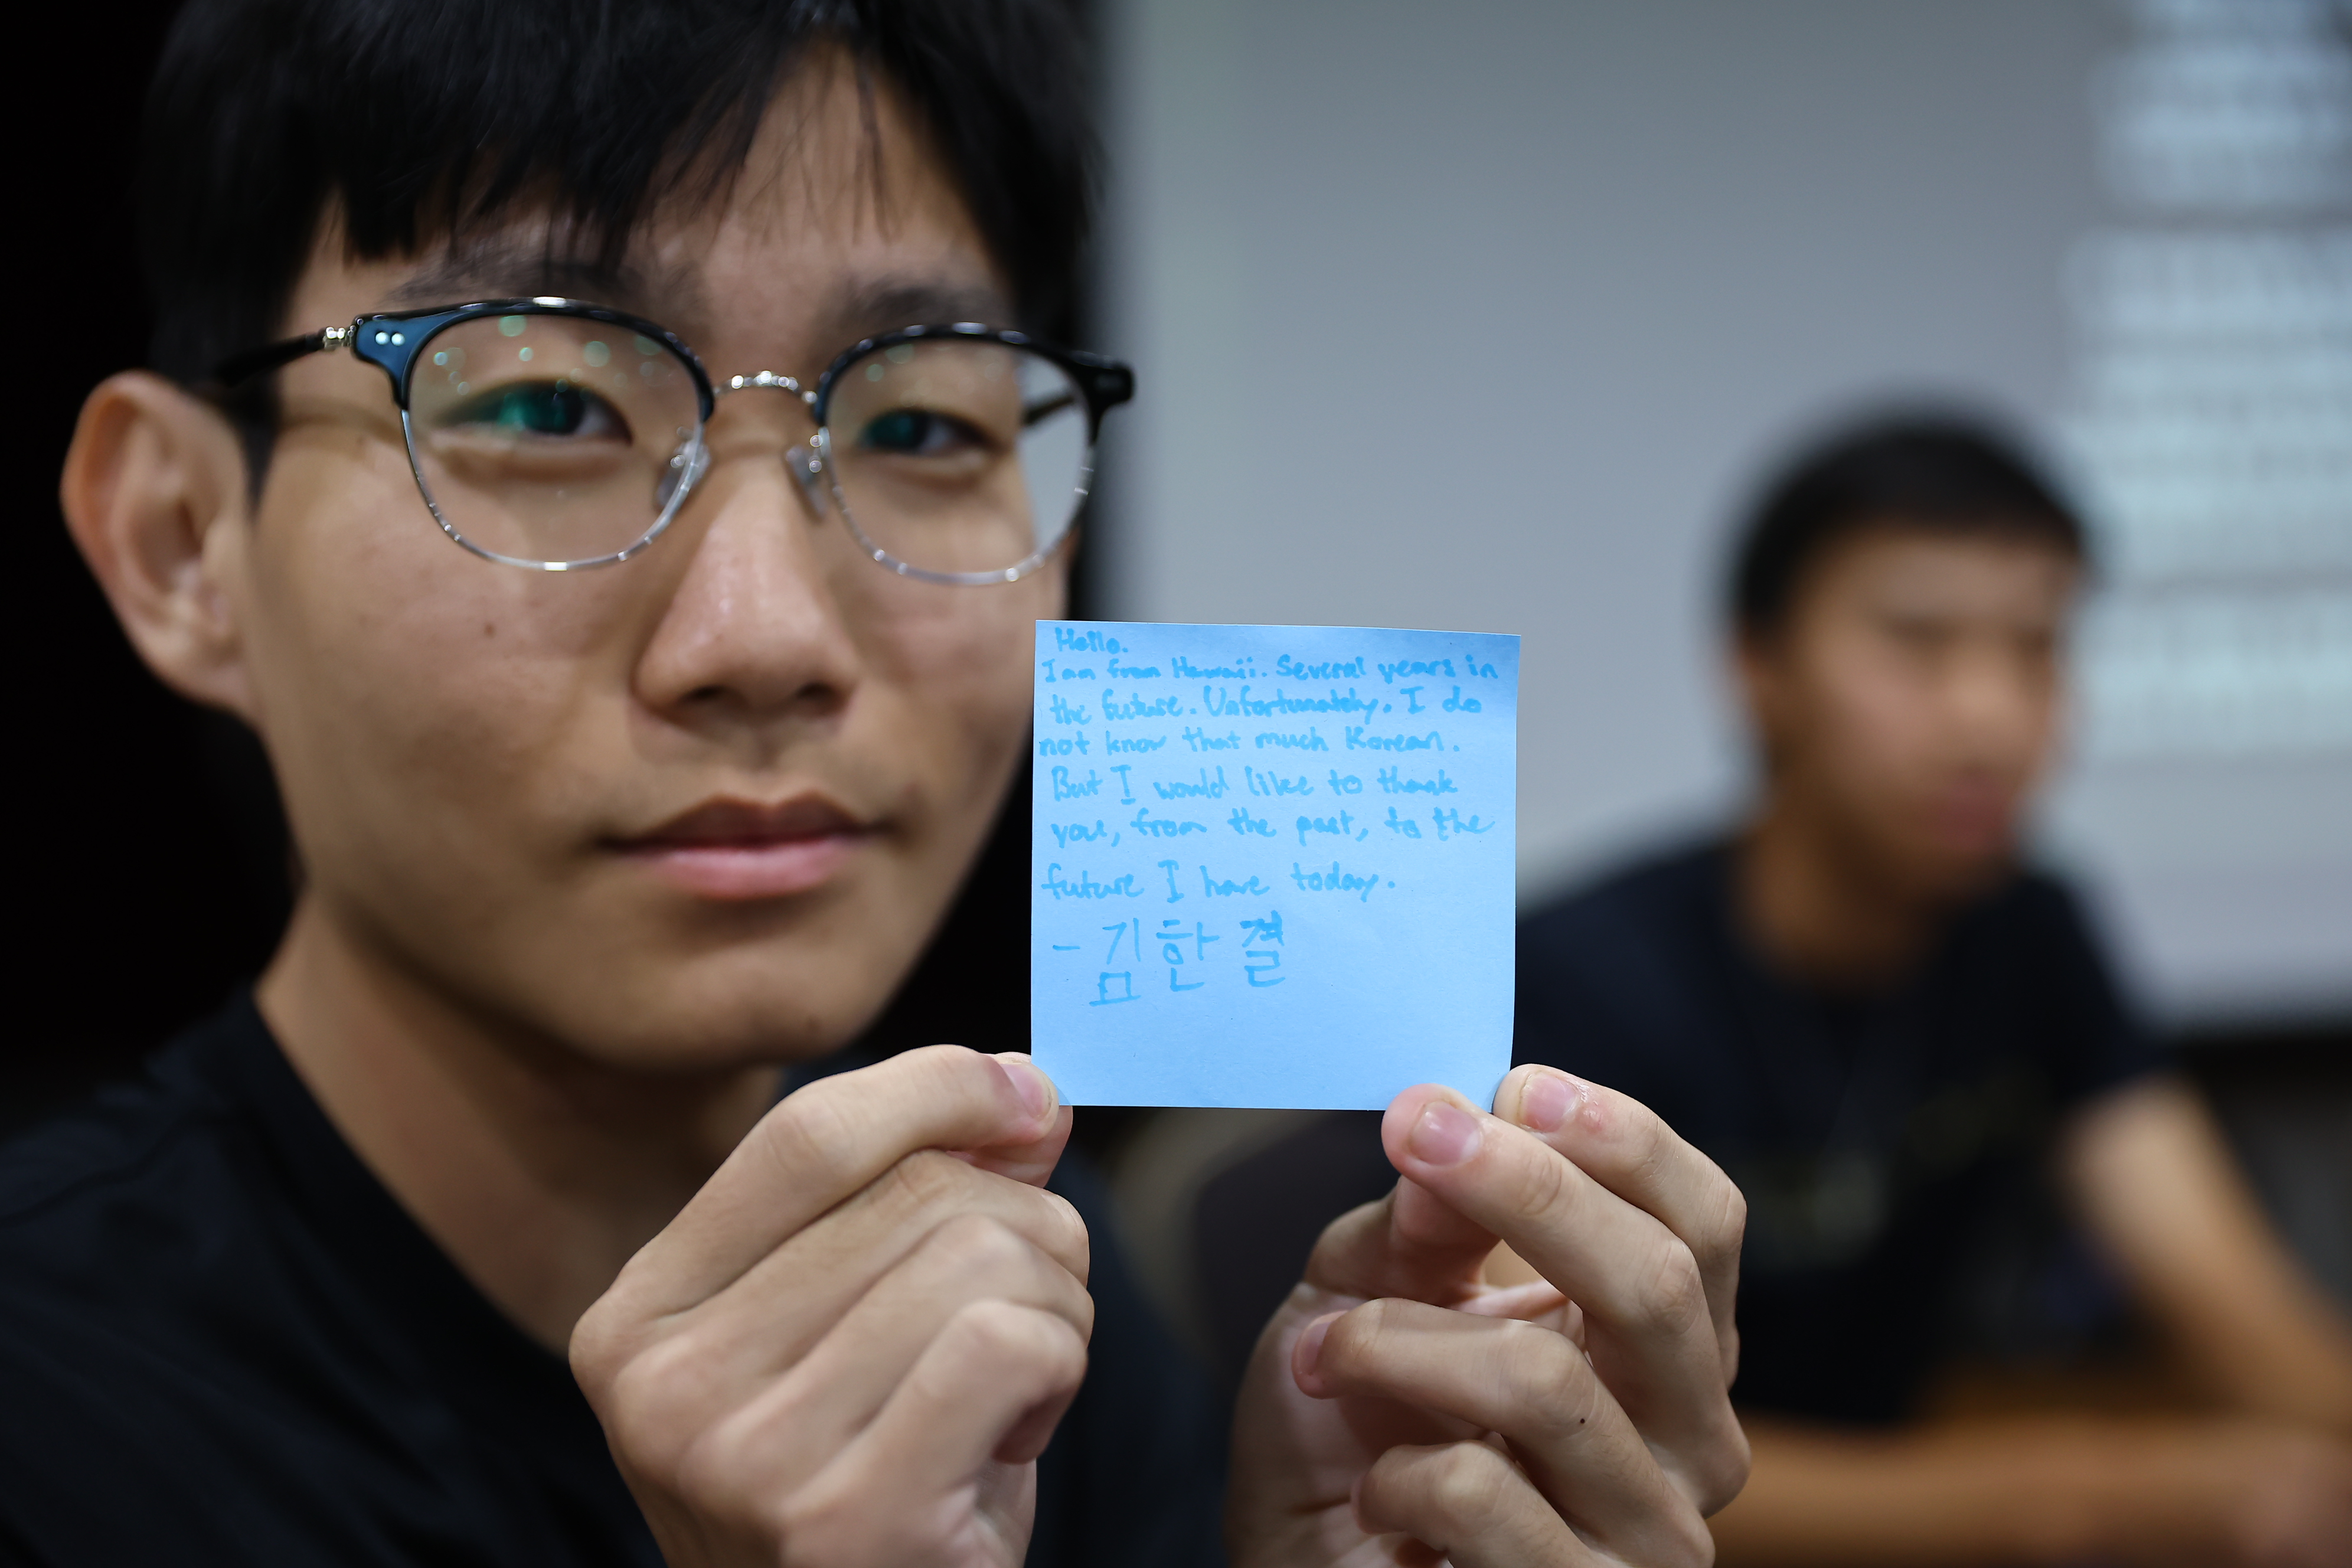 Hello.
I am from Hawaii. Several years in
the future. Unfortunately, I do
not know that much Korean.
But I would like to thank
you, from the past, to the
future I have today.
- 김한결